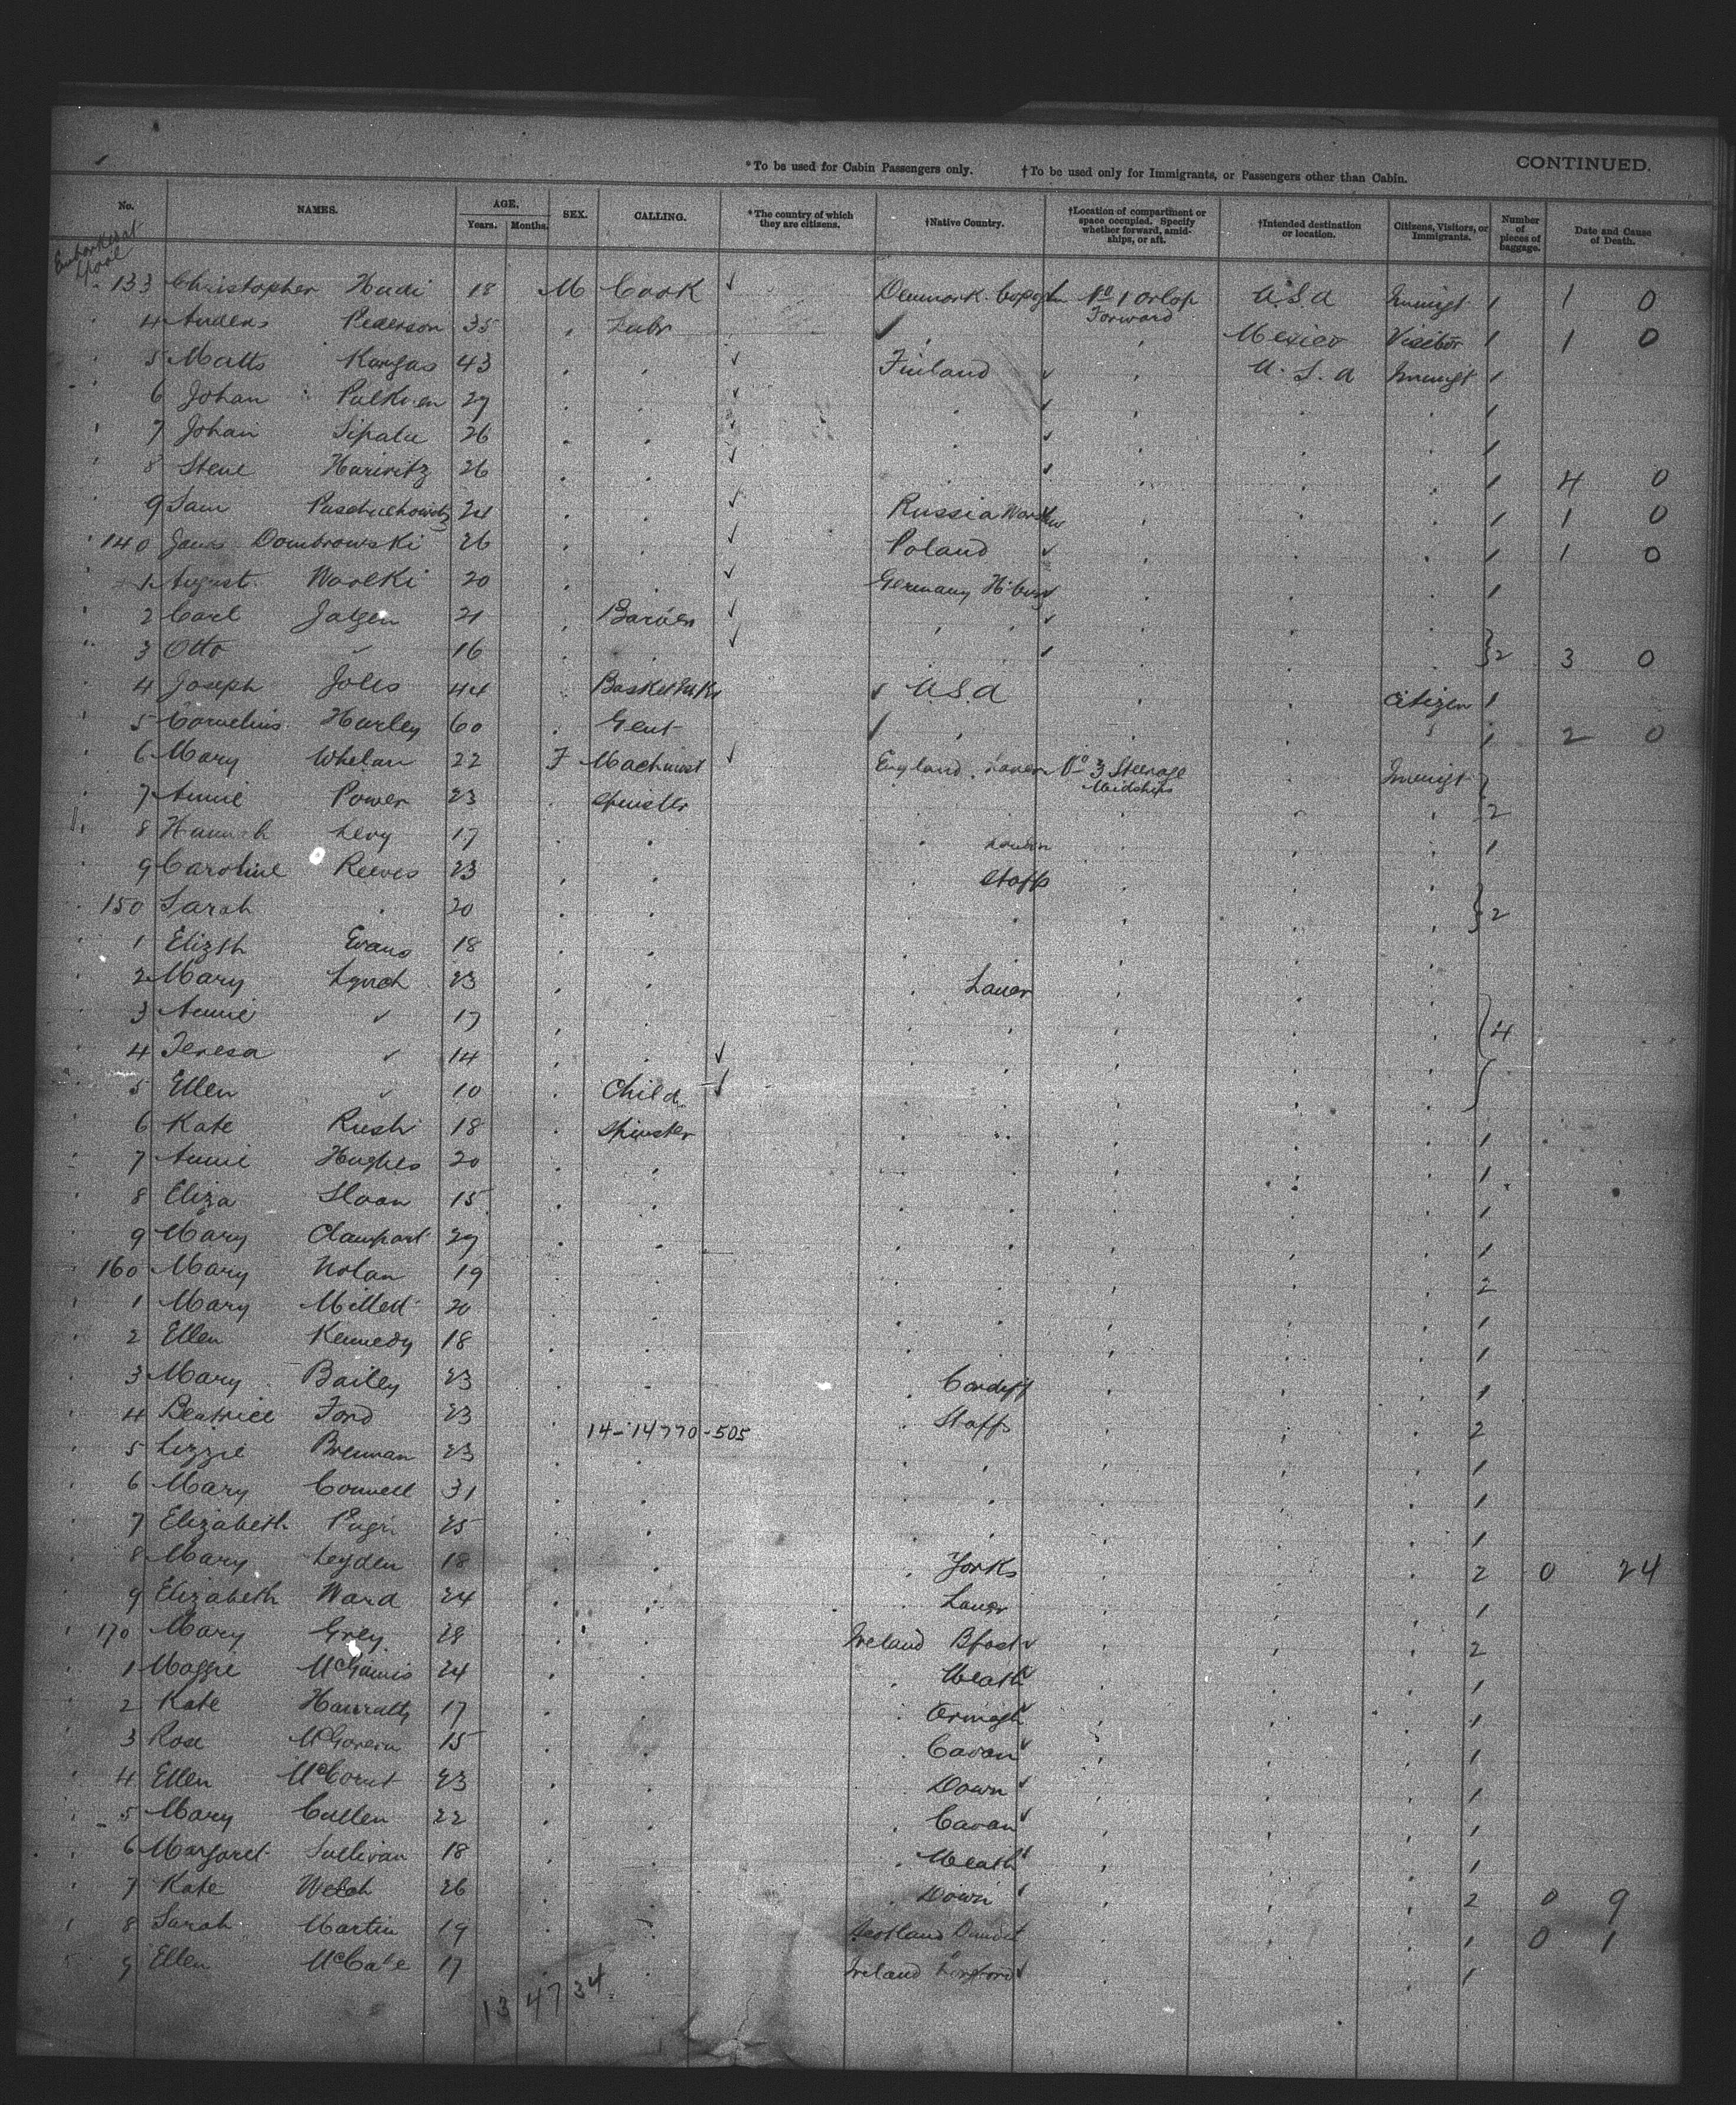 CONTINUED.
*To be used for Cabin Passengers only. †To be used only for Immigrants, or Passengers other than Cabin.
No. NAMES. AGE. Years. Months. SEX. CALLING. *The country of which they are citizens. †Native Country. †Location of compartment or space occupied. Specify whether forward, amidships, or aft. †Intended destination or location. Citizens, Visitors, or Immigrants. Number of pieces of baggage. Date and Cause of Death.
133 Christopher Hudi 18 M Cook Denmark N° 1 orlop Forward U.S.A Immigt 1 1 0
4 Anders Pederson 35 Labr Mexico Visitor 1 1 0
5 Matts Kangas 43 Finland U.S.A Immigt 1
6 Johan 29 1
7 Johan Sipala 26 1
8 Steve 26 1 4 0
9 Sam 24 Russia 1 1 0
140 Dombrowski 26 Poland 1 1 0
1 August 20 Germany 1
2 Carl Jalgen 21
3 Otto " 16 2 3 0
4 Joseph Joles 44 U.S.A Citizen 1
5 Cornelius Hurley 60 Gent 1 2 0
6 Mary Whelan 22 F Machinist England N° 3 Steerage Midships Immigt
7 Annie Power 23 Spinster 2
8 Hannah Levy 17 1
9 Caroline Reeves 23 Staffs
150 Sarah " 20 2
1 Elizth Evans 18
2 Mary Lynch 23 Lancr
3 Annie " 17 4
4 Teresa " 14
5 Ellen " 10 Child
6 Kate Rush 18 Spinster 1
7 Annie Hughes 20 1
8 Eliza Sloan 15 1
9 Mary 29 1
160 Mary Nolan 19 2
1 Mary Millett 20 1
2 Ellen Kennedy 18 1
3 Mary Bailey 23 Cardiff 1
4 Beatrice Ford 23 14-14770-505 Staffs 2
5 Lizzie Brennan 23 1
6 Mary Connell 31 1
7 Elizabeth 25 1
8 Mary Leyden 18 Yorks 2 0 24
9 Elizabeth Ward 24 Lancr 1
170 Mary Grey 28 Ireland Bfast 2
1 Maggie McGinnis 24 Meath 1
2 Kate Hanratty 17 Armagh 1
3 Rose McGovern 15 Cavan 1
4 Ellen McCourt 23 Down 1
5 Mary Cullen 22 Cavan 1
6 Margaret Sullivan 18 Meath 1
7 Kate Welch 26 Down 2 0 9
8 Sarah Martin 19 Scotland Dundee 1 0 1
9 Ellen McCabe 17 Ireland Longford 1
13 4734